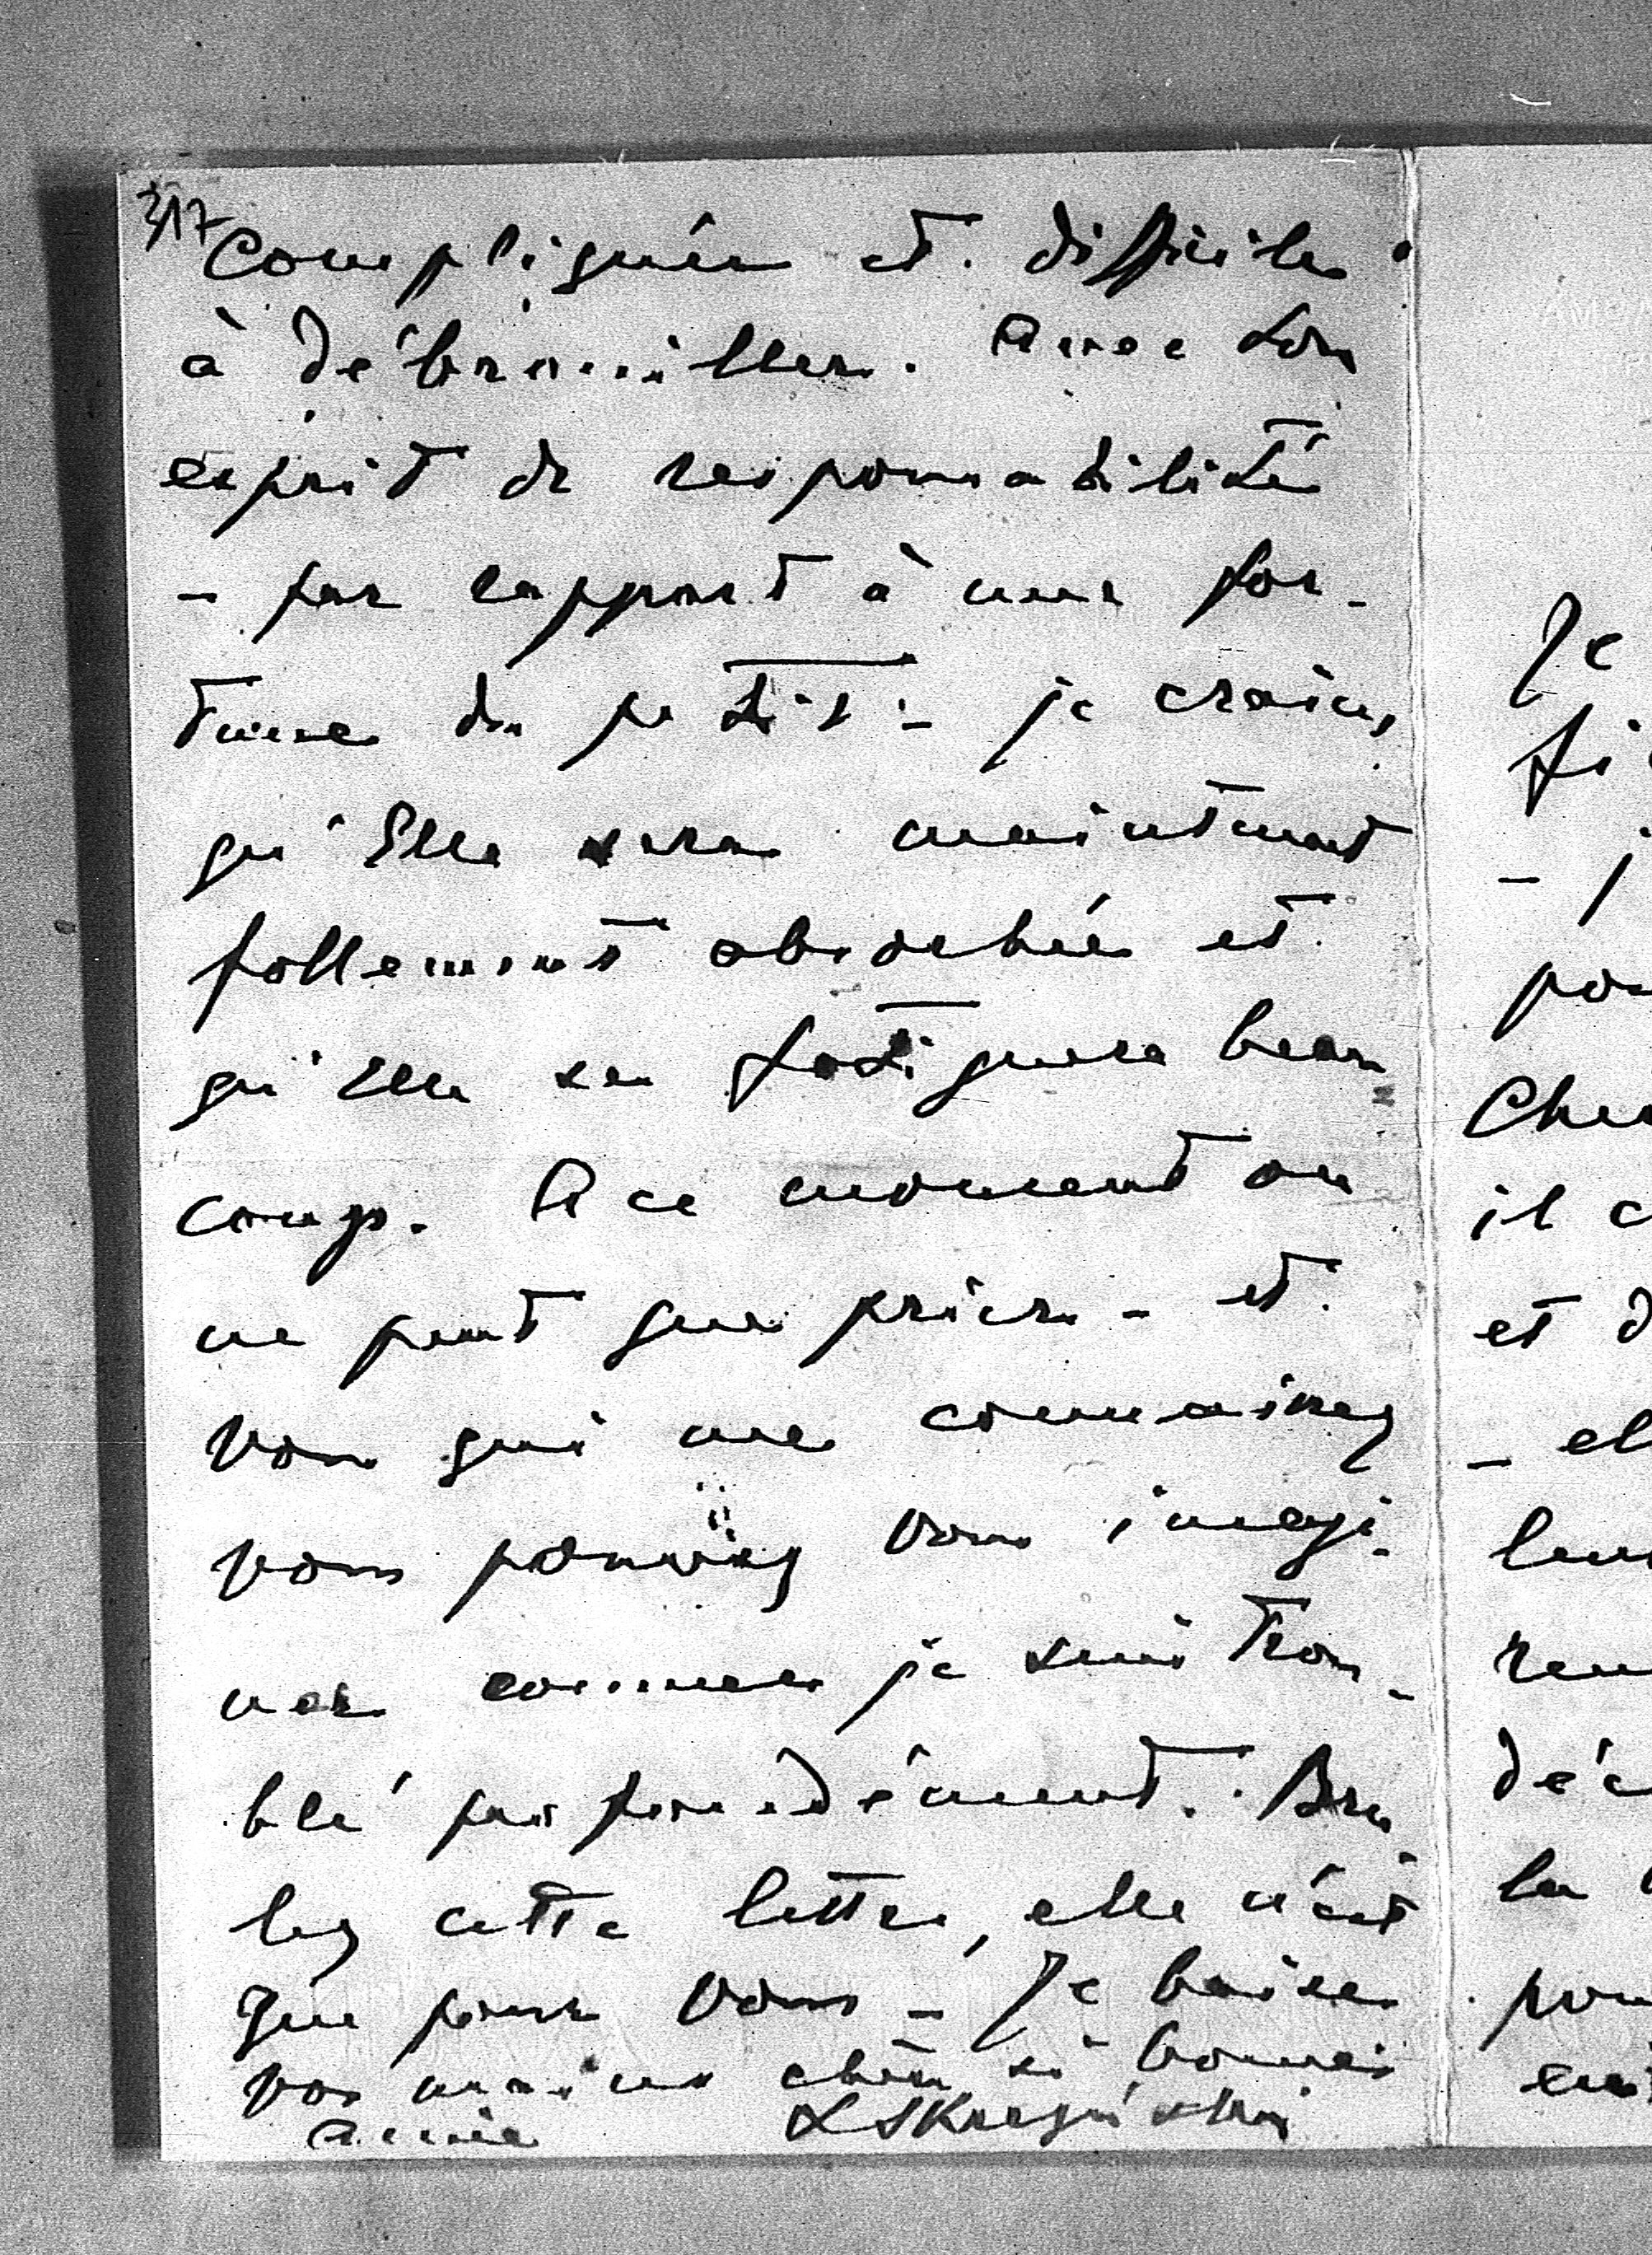 317
compliquée et difficile
à débrouiller. Avec son
esprit de responsabilité
- par rapport à une for-
tune du petit - je crains
qu'Elle sera maintenant
follement absorbée et
qu'Elle se fatiguera beau
coup. A ce moment on
ne peut que prier - et
vous qui me connaissez
vous pouvez vous imagi-
ner comme je suis trou-
blé profondément. Bru
lez cette lettre, elle n'est
que pour vous - Je baise
vos mains chère si bonne
amie
Je
fi
-
pou
Cher
il c
et d
- el
leur
ren
déc
la
pou